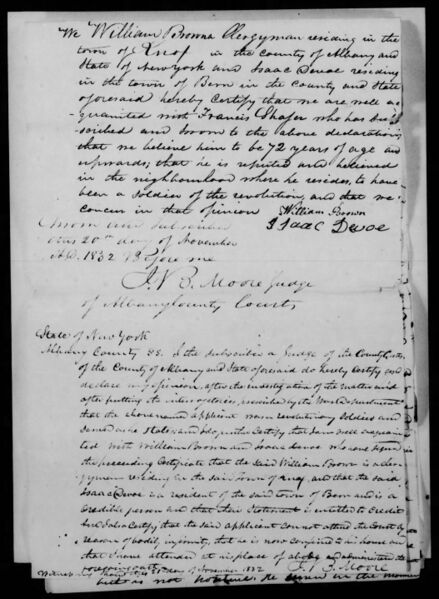 We William Browne Clergyman residing in the
town of Knox in the County of Albany and
State of New York and Isaac Devoe residing
in the town of Bern in the County and State
aforesaid hereby Certify that we are well ac
quainted with Francis Shafer who has sub
scribed and sworn to the above declaration,
that we believe him to be 72 years of age and
upwards; that he is reputed and believed
in the neighbourhood where he resides, to have
been a Soldier of the revolution, and that we
concur in that opinion William Brown
Isaac Devoe
Sworn and Subscribed
this 20th day of November
A.D. 1832 Before me
J. V. B. Moore Judge
of Albany County Courts
State of New York
Albany County SS. I the subscriber a Judge of the County Courts
of the County of Albany and State aforesaid do hereby Certify and
declare my opinion, after the investigation of the matter and
after putting the interrogatories, prescribed by the War Department
that the above named applicant was a revolutionary Soldier and
Served as he States and I do further Certify that I am well acquain
ted with William Brown and Isaac Devoe who have signed
the preceding Certificate that the Said William Brown is a cler
gyman residing in the Said Town of Knox, and that the said
Isaac Devoe is a resident of the said town of Bern and is a
Credible person and that their Statement is entitled to Credit
And I also Certify that the said applicant can not attend the Court by
reason of bodily infirmity, that he is now confined to his house and
that I have attended at his place of abode and administered the
J. V. B. Moore
Witness my hand this day of November 1832
as not in the